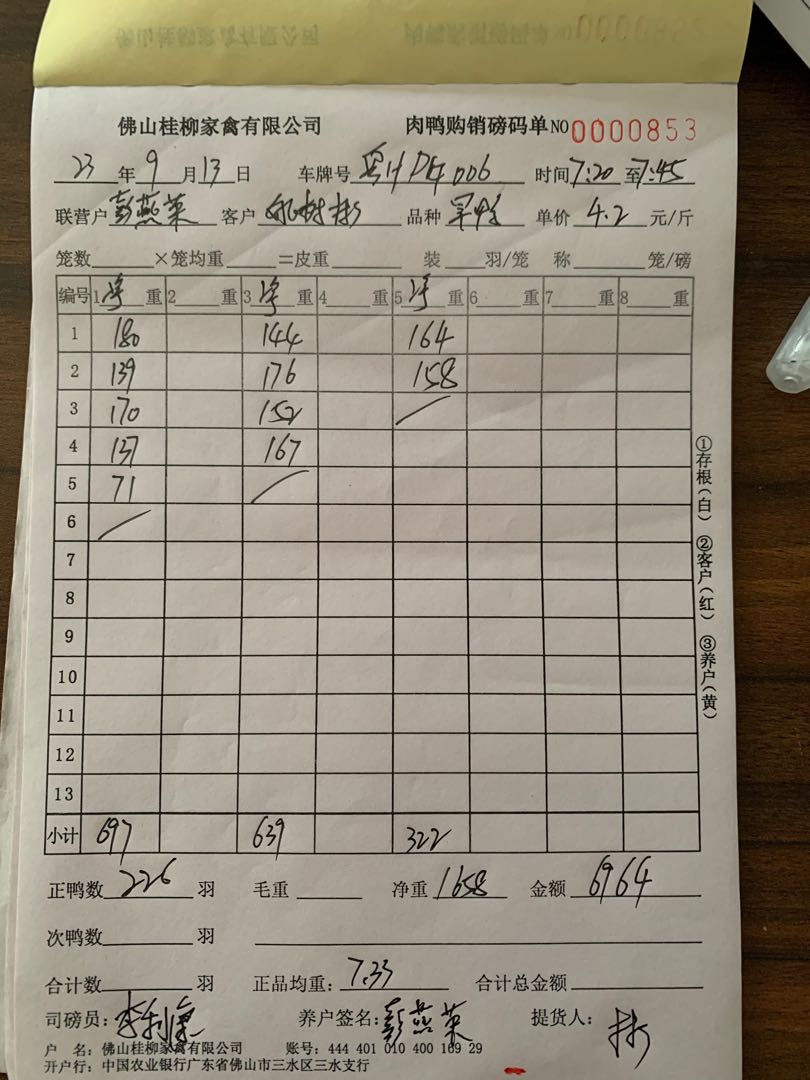 佛山桂柳家禽有限公司 肉鸭购销磅码单 NO 0000853
23 年 9 月 13 日 车牌号 粤 006 时间 7:20 至 7:45
联营户 彭燕菜 客户 品种 单价 4.2 元/斤
笼数 ×笼均重 =皮重 装 羽/笼 称 笼/磅
编号 1 净 重 2 重 3 净 重 4 重 5 净 重 6 重 7 重 8 重
1 180 144 164
2 139 176 158
3 170 152
4 137 167
5 71
6
7
8
9
10
11
12
13
小计 697 639 322
正鸭数 226 羽 毛重 净重 1658 金额 6964
次鸭数 羽
合计数 羽 正品均重: 7.33 合计总金额
司磅员: 养户签名: 彭燕菜 提货人:
户 名: 佛山桂柳家禽有限公司 账号: 444 401 010 400 169 29
开户行: 中国农业银行广东省佛山市三水区三水支行
①存根(白) ②客户(红) ③养户(黄)